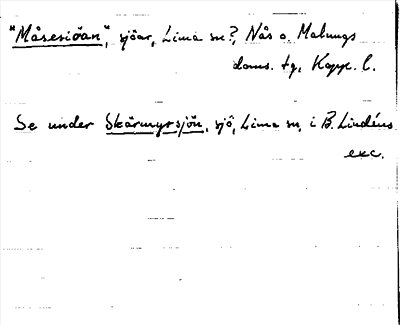 "Måsesiöan", sjöar, Lima sn?, Nås o. Malungs
doms. tg, Kopp. l.
Se under Skärmyrsjön, sjö, Lima sn, i B. Lindéns
exc.